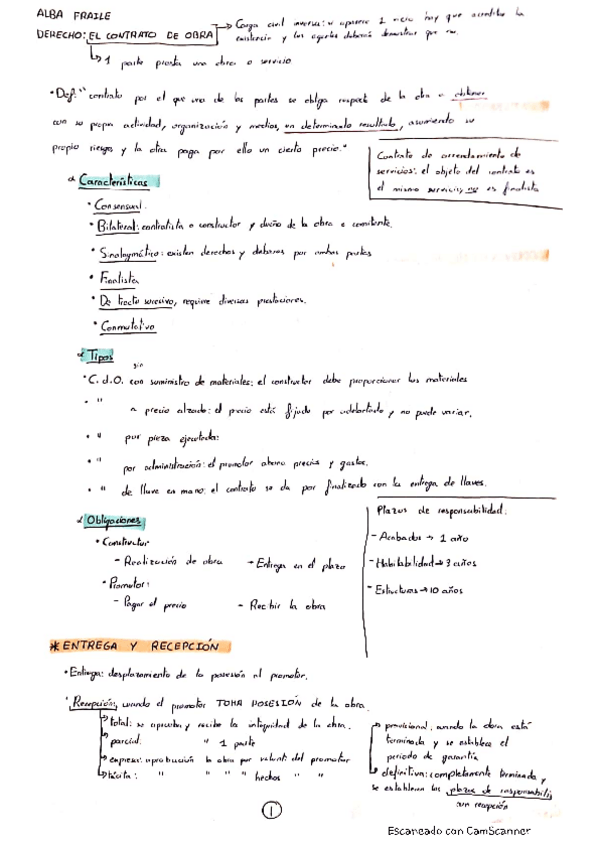 ALBA FRAILE
DERECHO: EL CONTRATO DE OBRA
Carga civil inversa: si aparece 1 vicio hay que acreditar la
existencia y los agentes deberán demostrar que no.
1 parte presta una obra o servicio
• Def: "contrato por el que una de las partes se obliga respecto de la otra a obtener
con su propia actividad, organización y medios, un determinado resultado, asumiendo su
propio riesgo, y la otra paga por ello un cierto precio."
Contrato de arrendamiento de
servicios: el objeto del contrato es
el mismo servicio, no es finalista
Características
• Consensual
• Bilateral: contratista o constructor y dueño de la obra o comitente.
• Sinalagmático: existen derechos y deberes por ambas partes
• Finalista
• De tracto sucesivo, requiere diversas prestaciones.
• Conmutativo
Tipos
sin
• C. d. O. con suministro de materiales: el constructor debe proporcionar los materiales
• " a precio alzado: el precio está fijado por adelantado y no puede variar.
• " por pieza ejecutada:
• " por administración: el promotor abona precios y gastos.
• " de llave en mano: el contrato se da por finalizado con la entrega de llaves.
Obligaciones
• Constructor
- Realización de obra - Entrega en el plazo
• Promotor:
- Pagar el precio - Recibir la obra
Plazos de responsabilidad:
- Acabados → 1 año
- Habitabilidad → 3 años
- Estructuras → 10 años
* ENTREGA Y RECEPCIÓN
• Entrega: desplazamiento de la posesión al promotor.
• Recepción: cuando el promotor TOMA POSESIÓN de la obra.
total: se aprueba y recibe la integridad de la obra.
parcial: " 1 parte
expresa: aprobación la obra por voluntad del promotor
tácita: " " " hechos " "
provisional: cuando la obra está
terminada y se establece el
periodo de garantía
definitiva: completamente terminada y
se establecen los plazos de responsabili
con recepción
1
Escaneado con CamScanner